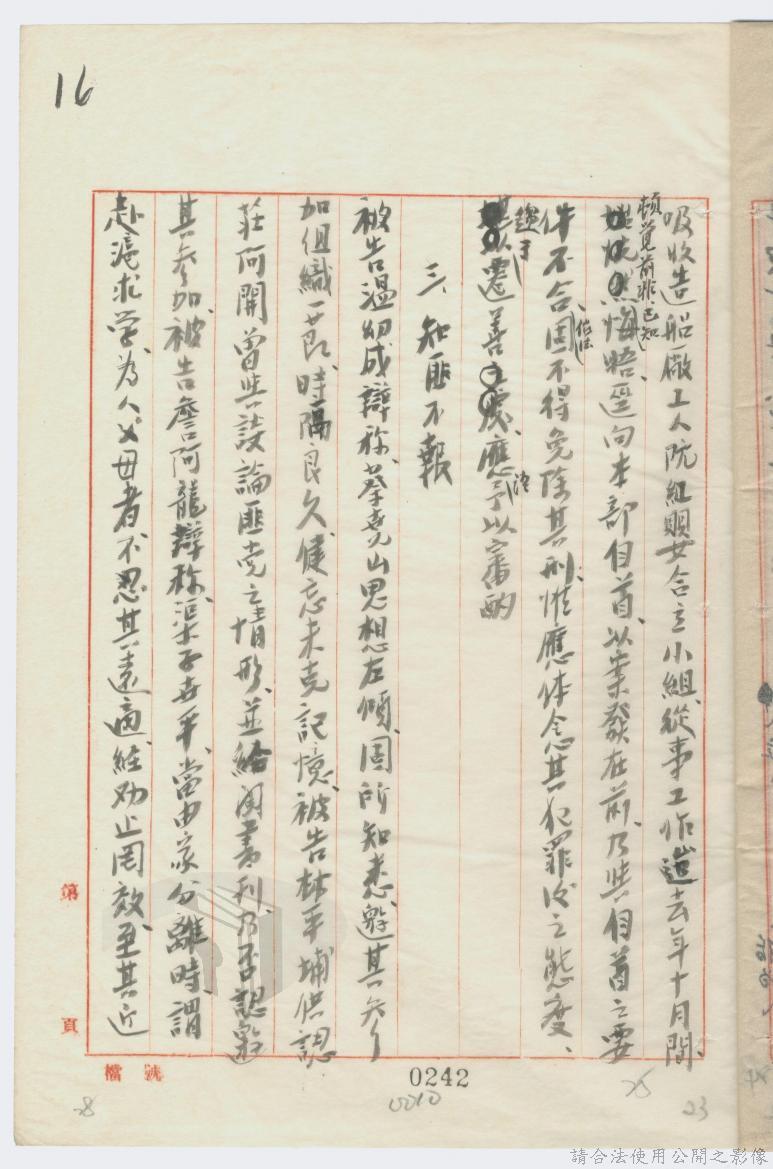 16
吸收造船廠工人阮紅嬰合立小組、從事工作、迨去年十月間、
頓覺前非、已知悔悟、逕向本部自首、以案發在前、乃與自首之要
件不合、依法固不得免除其刑、惟應体念其犯罪後之態度、
趨于遷善之處、應予以審酌
三、知匪不報
被告溫幼成辯称、蔡堯山思想左傾、固所知悉、邀其參
加組織一節、時隔良久、健忘未克記憶、被告林平埔供認
莊阿開曾与談論匪党之情形、並給閱書刊、乃否認邀
其參加、被告詹阿龍辯称、渠子世平、當由家分離時、謂
赴滬求学、為人父母者、不忍其遠適、經劝止罔效、至其近
第 頁
檔號
0242
0010
28
25
23
請合法使用公開之影像